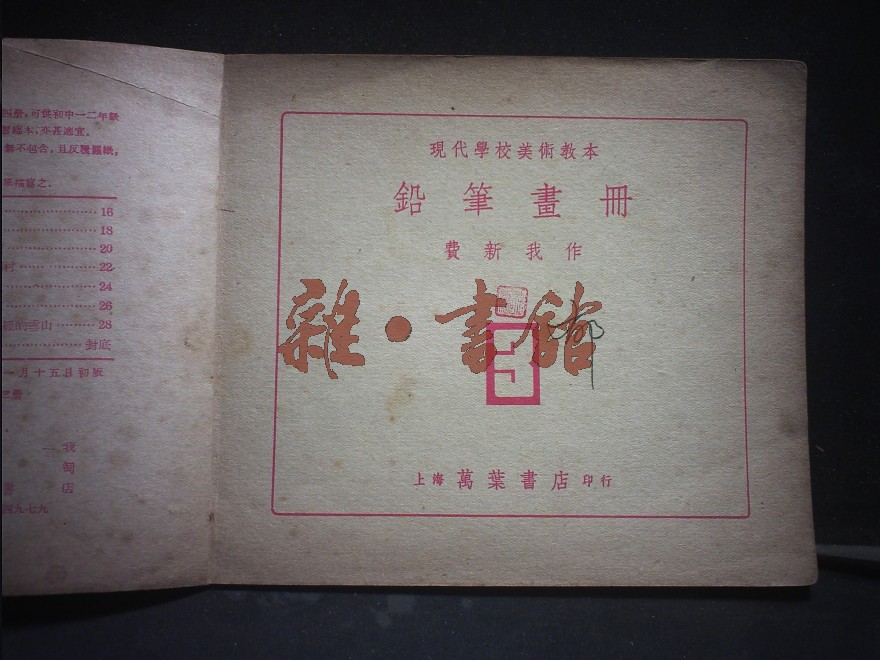 四冊，可供初中一二年級
習臨本，亦甚適宜。
無不包含，且反覆羅織，
16
18
20
村 22
24
26
的雪山 28
封底
一月十五日初版
我
店
四九七九
現代學校美術教本
鉛筆畫冊
費新我作
雜·書館
3
上海 萬葉書店 印行